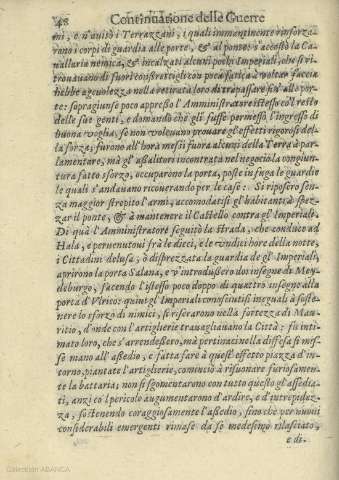 48 Continuatione delle Guerre
ni, e n'auisò i Terrazzani, i quali immantinente rinforza-
rono i corpi di guardia alle porte, & al ponte: s'accostò la Ca-
uallaria nemica, & incalzati alcuni pochi Imperiali, che si ri-
trouauano di fuori constrettigli con poca fatica à voltar faccia
hebbe ageuolezza nella retirata loro di trapassare fin alle por-
te: sopragiunse poco appresso l'Amministratore istesso col resto
delle sue genti, e domandò che gli fusse permesso l'ingresso di
buona voglia, se non voleuano prouare gl'effetti rigorosi del-
la forza; furono all'hora messi fuora alcuni della Terra à par-
lamentare, ma gl'assalitori incontrata nel negocio la congiun-
tura fatto sforzo, occuparono la porta, poste in fuga le guardie
le quali s'andauano ricouerando per le case: Si riposero sen-
za maggior strepito l'armi, accomodatisi gl'habitanti à spez-
zar il ponte, & à mantenere il Castello contra gl'Imperiali.
Di quà l'Amministratore seguitò la strada, che conduce ad
Hala, e peruenutoui frà le dieci, e le vndici hore della notte,
i Cittadini delusa, ò disprezzata la guardia de gl'Imperiali,
aprirono la porta Salana, e v'introdussero doi insegne di Mey-
deburgo, facendo l'istesso poco doppo di quattro insegne alla
porta d'Vlrico: quini gl'Imperiali conosciutisi ineguali à soste-
nere lo sforzo di nimici, si riserarono nella fortezza di Mau-
ritio, d'onde con l'artiglierie trauagliauano la Città: fù inti-
mato loro, che s'arrendessero, ma pertinaci nella diffesa si mis-
se mano all'assedio, e fatta fare à quest'effetto piazza d'in-
torno, piantate l'artiglierie, cominciò à risuonare furiosamen-
te la battaria; non si sgomentarono con tutto questo gl'assedia-
ti, anzi col pericolo augumentarono d'ardire, e d'intrepidez-
za, sostenendo coraggiosamente l'assedio, fino che per nuoui
considerabili emergenti rimase da sè medesimo rilasciato,
e di-
Colección ABANCA